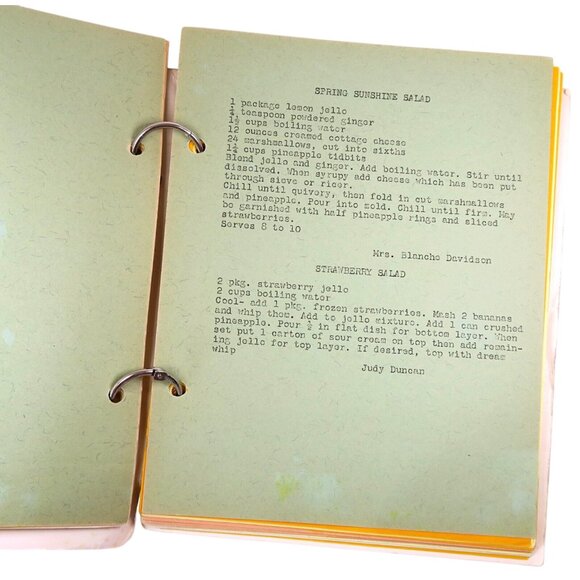 SPRING SUNSHINE SALAD
1 package lemon jello
¼ teaspoon powdered ginger
1½ cups boiling water
12 ounces creamed cottage cheese
24 marshmallows, cut into sixths
1¼ cups pineapple tidbits
Blend jello and ginger. Add boiling water. Stir until
dissolved. When syrupy add cheese which has been put
through sieve or ricer.
Chill until quivory, then fold in cut marshmallows
and pineapple. Pour into mold. Chill until firm. May
be garnished with half pineapple rings and sliced
strawberries.
Serves 8 to 10
Mrs. Blanche Davidson
STRAWBERRY SALAD
2 pkg. strawberry jello
2 cups boiling water
Cool- add 1 pkg. frozen strawberries. Mash 2 bananas
and whip them. Add to jello mixture. Add 1 can crushed
pineapple. Pour ½ in flat dish for bottom layer. When
set put 1 carton of sour cream on top then add remain-
ing jello for top layer. If desired, top with dream
whip
Judy Duncan